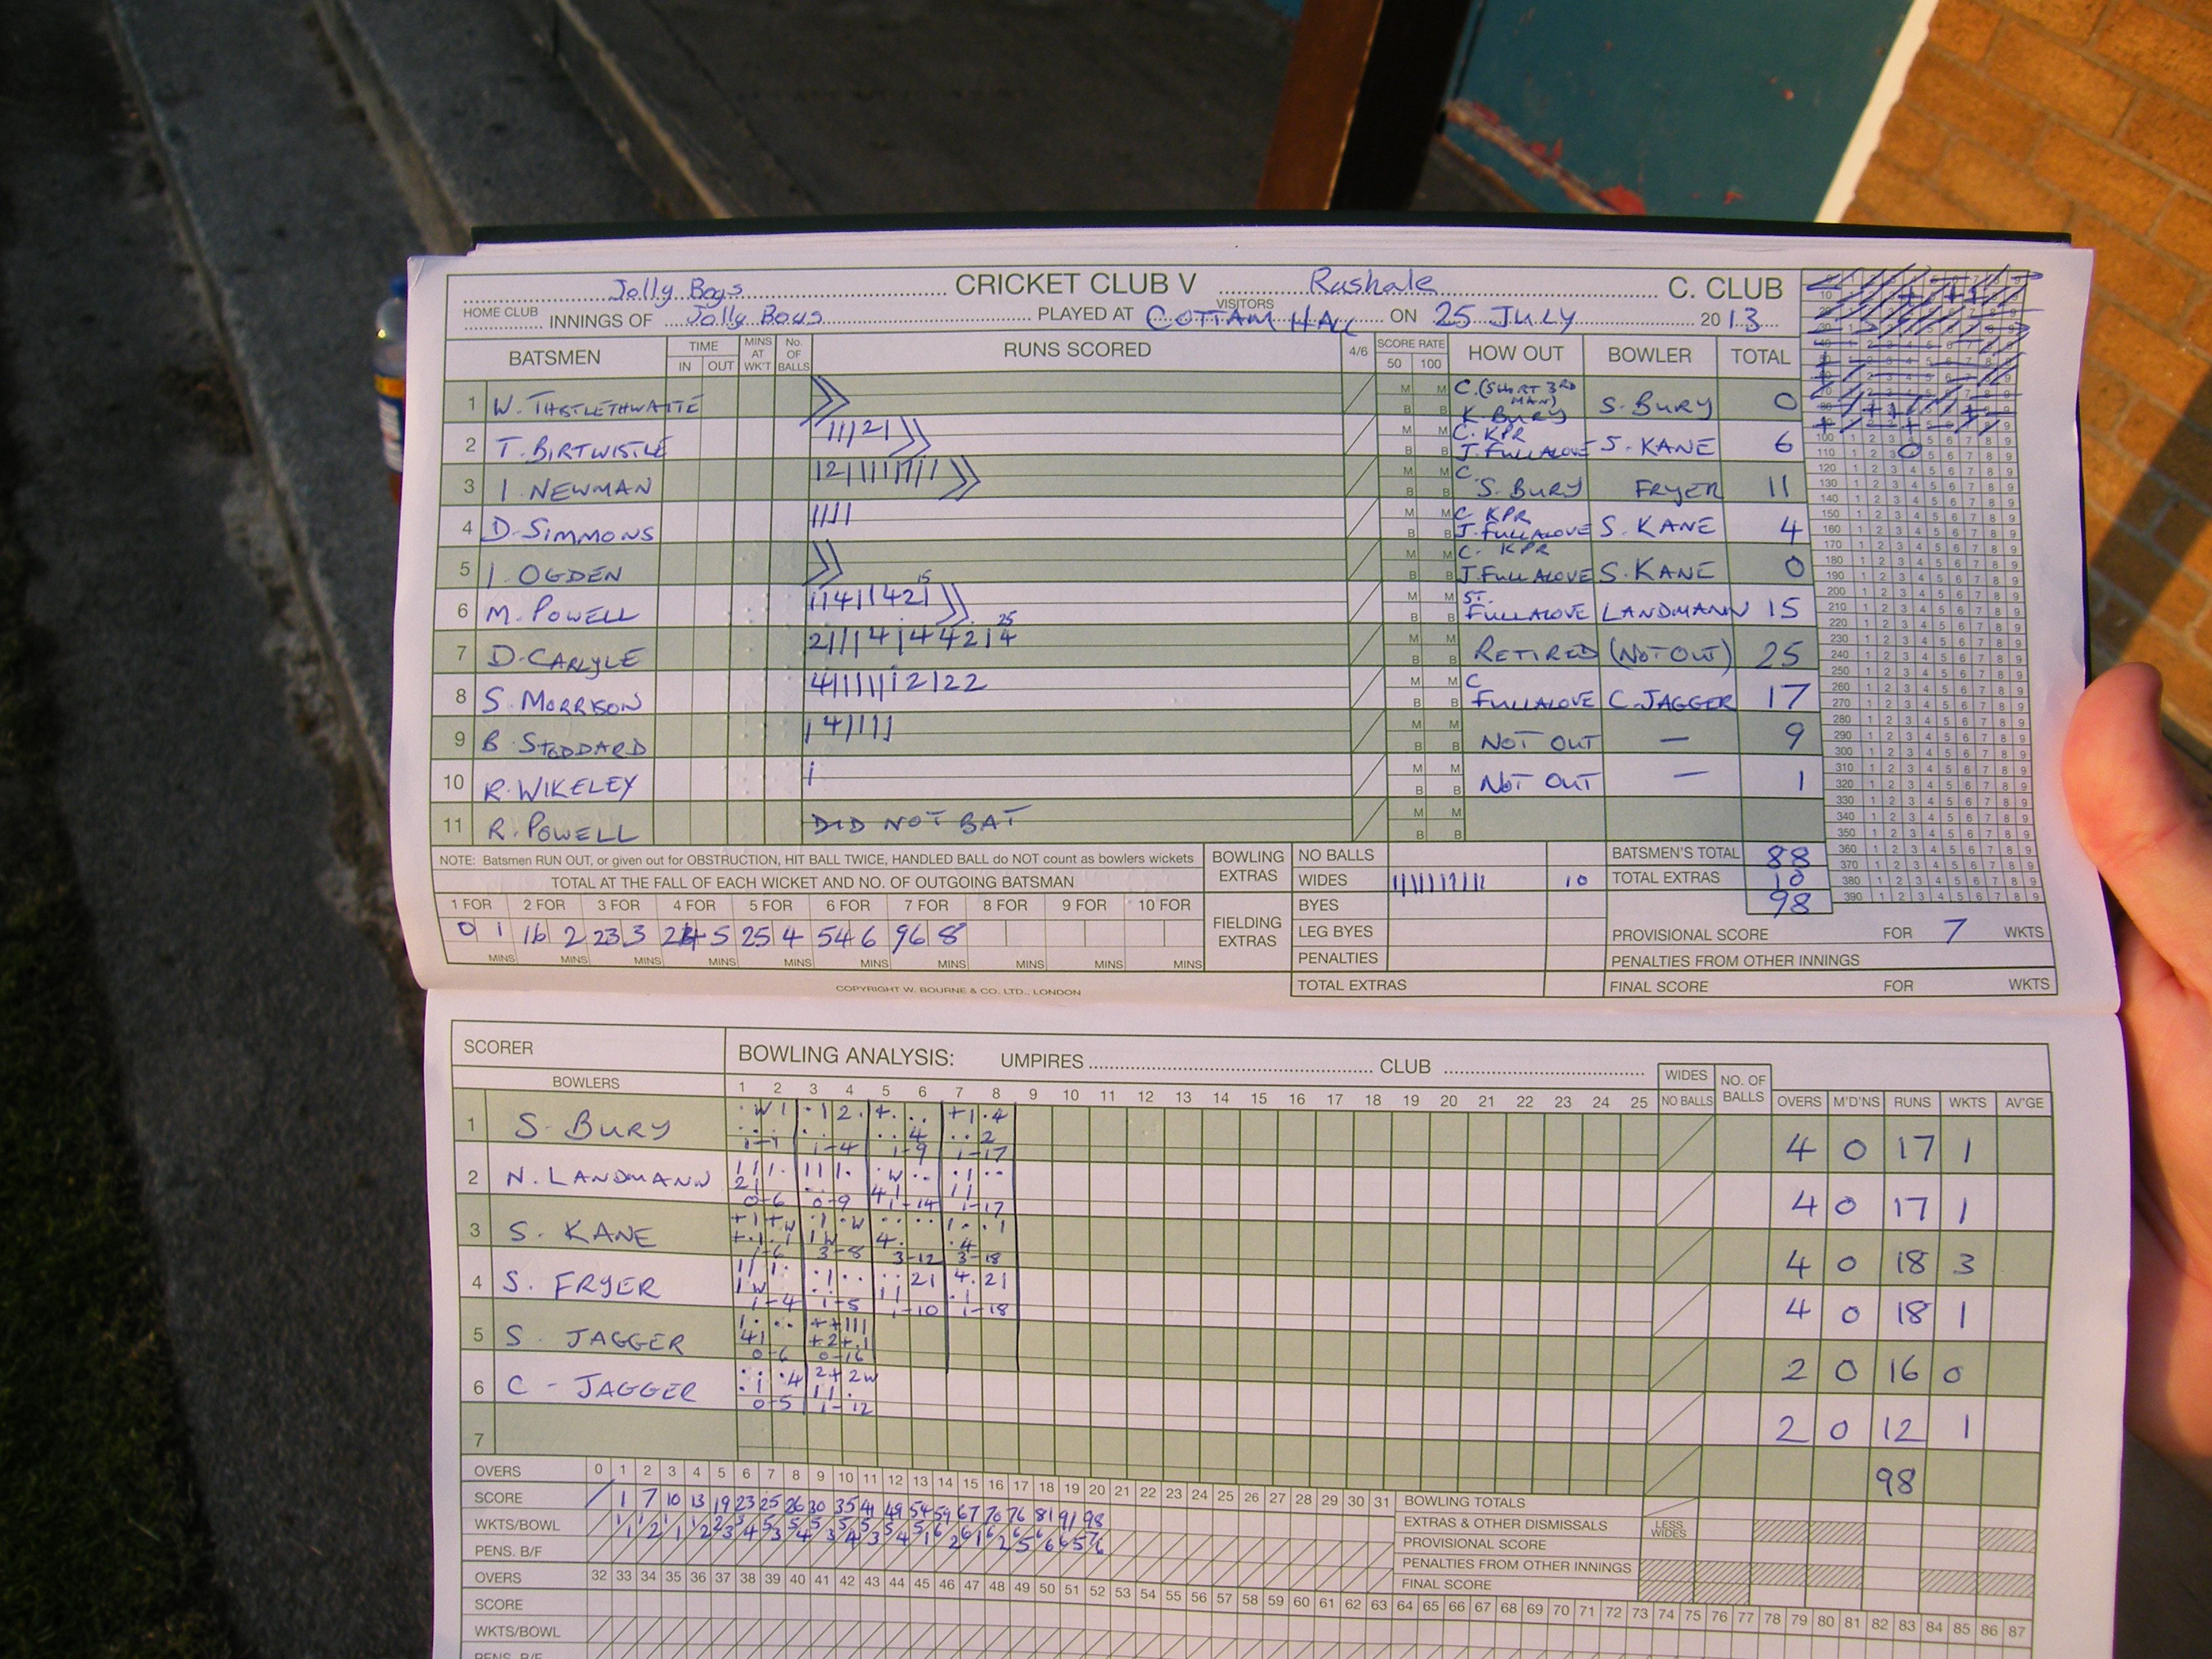 Jolly Boys CRICKET CLUB V Rushale C. CLUB
HOME CLUB VISITORS
INNINGS OF Jolly Boys PLAYED AT COTTAM HALL ON 25 JULY 2013
BATSMEN TIME IN OUT MINS AT WK'T No. OF BALLS RUNS SCORED 4/6 SCORE RATE 50 100 HOW OUT BOWLER TOTAL
1 W. THISTLETHWAITE C. (SHORT 3RD MAN) K. BURY S. BURY 0
2 T. BIRTWISTLE 11121 C. KPR J. FULLALOVE S. KANE 6
3 I. NEWMAN 1211111111 C. S. BURY FRYER 11
4 D. SIMMONS 1111 C KPR J. FULLALOVE S. KANE 4
5 I. OGDEN C. KPR J. FULLALOVE S. KANE 0
6 M. POWELL 11411421 15 ST. FULLALOVE LANDMANN 15
7 D. CARLYLE 21114144214 25 RETIRED (NOT OUT) 25
8 S. MORRISON 41111112122 C FULLALOVE C. JAGGER 17
9 B. STODDARD 141111 NOT OUT — 9
10 R. WIKELEY 1 NOT OUT — 1
11 R. POWELL DID NOT BAT
NOTE: Batsmen RUN OUT, or given out for OBSTRUCTION, HIT BALL TWICE, HANDLED BALL do NOT count as bowlers wickets
TOTAL AT THE FALL OF EACH WICKET AND NO. OF OUTGOING BATSMAN
1 FOR 2 FOR 3 FOR 4 FOR 5 FOR 6 FOR 7 FOR 8 FOR 9 FOR 10 FOR
0 1 16 2 23 3 24 5 25 4 54 6 96 8
MINS MINS MINS MINS MINS MINS MINS MINS MINS MINS
COPYRIGHT W. BOURNE & CO. LTD., LONDON
BOWLING EXTRAS NO BALLS
WIDES 1111111111 10
FIELDING EXTRAS BYES
LEG BYES
PENALTIES
TOTAL EXTRAS
BATSMEN'S TOTAL 88
TOTAL EXTRAS 10
98
PROVISIONAL SCORE FOR 7 WKTS
PENALTIES FROM OTHER INNINGS
FINAL SCORE FOR WKTS
SCORER BOWLING ANALYSIS: UMPIRES CLUB
BOWLERS 1 2 3 4 5 6 7 8 9 10 11 12 13 14 15 16 17 18 19 20 21 22 23 24 25 WIDES NO BALLS NO. OF BALLS OVERS M'D'NS RUNS WKTS AV'GE
1 S. BURY 1-1 1-4 1-9 1-17 4 0 17 1
2 N. LANDMANN 0-6 0-9 1-14 1-17 4 0 17 1
3 S. KANE 1-6 3-8 3-12 3-18 4 0 18 3
4 S. FRYER 1-4 1-5 1-10 1-18 4 0 18 1
5 S. JAGGER 0-6 0-16 2 0 16 0
6 C - JAGGER 0-5 1-12 2 0 12 1
7
98
OVERS 0 1 2 3 4 5 6 7 8 9 10 11 12 13 14 15 16 17 18 19 20 21 22 23 24 25 26 27 28 29 30 31
SCORE 1 7 10 13 19 23 25 26 30 35 41 49 54 59 67 70 76 81 91 98
WKTS/BOWL
PENS. B/F
BOWLING TOTALS
EXTRAS & OTHER DISMISSALS LESS WIDES
PROVISIONAL SCORE
PENALTIES FROM OTHER INNINGS
FINAL SCORE
OVERS 32 33 34 35 36 37 38 39 40 41 42 43 44 45 46 47 48 49 50 51 52 53 54 55 56 57 58 59 60 61 62 63 64 65 66 67 68 69 70 71 72 73 74 75 76 77 78 79 80 81 82 83 84 85 86 87
SCORE
WKTS/BOWL
PENS. B/F